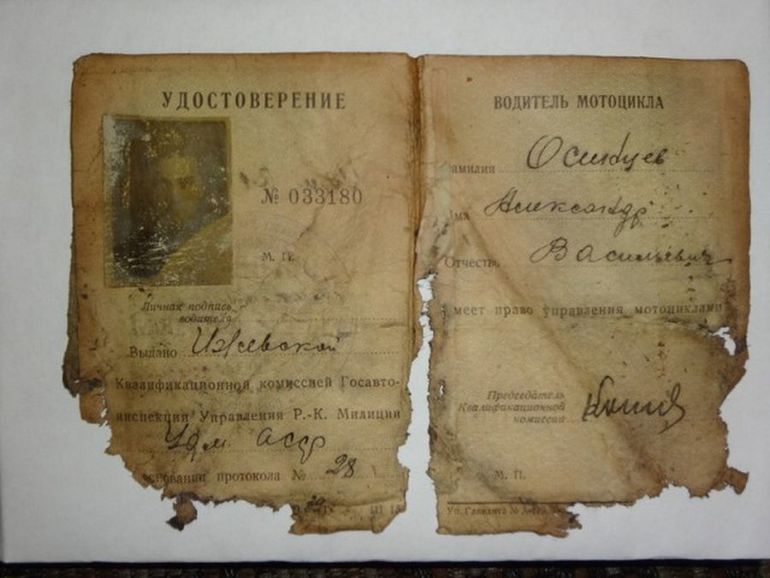 УДОСТОВЕРЕНИЕ
№ 033180
М. П.
Личная подпись
водителя
Выдано Ижевской
Квалификационной комиссией Госавто-
инспекции Управления Р.-К. Милиции
Удм АССР
основании протокола № 28
ВОДИТЕЛЬ МОТОЦИКЛА
амилия Осинцев
Имя Александр
Отчеств Васильевич
меет право управления мотоциклами
Председатель
Квалификационной
комиссии
М. П.